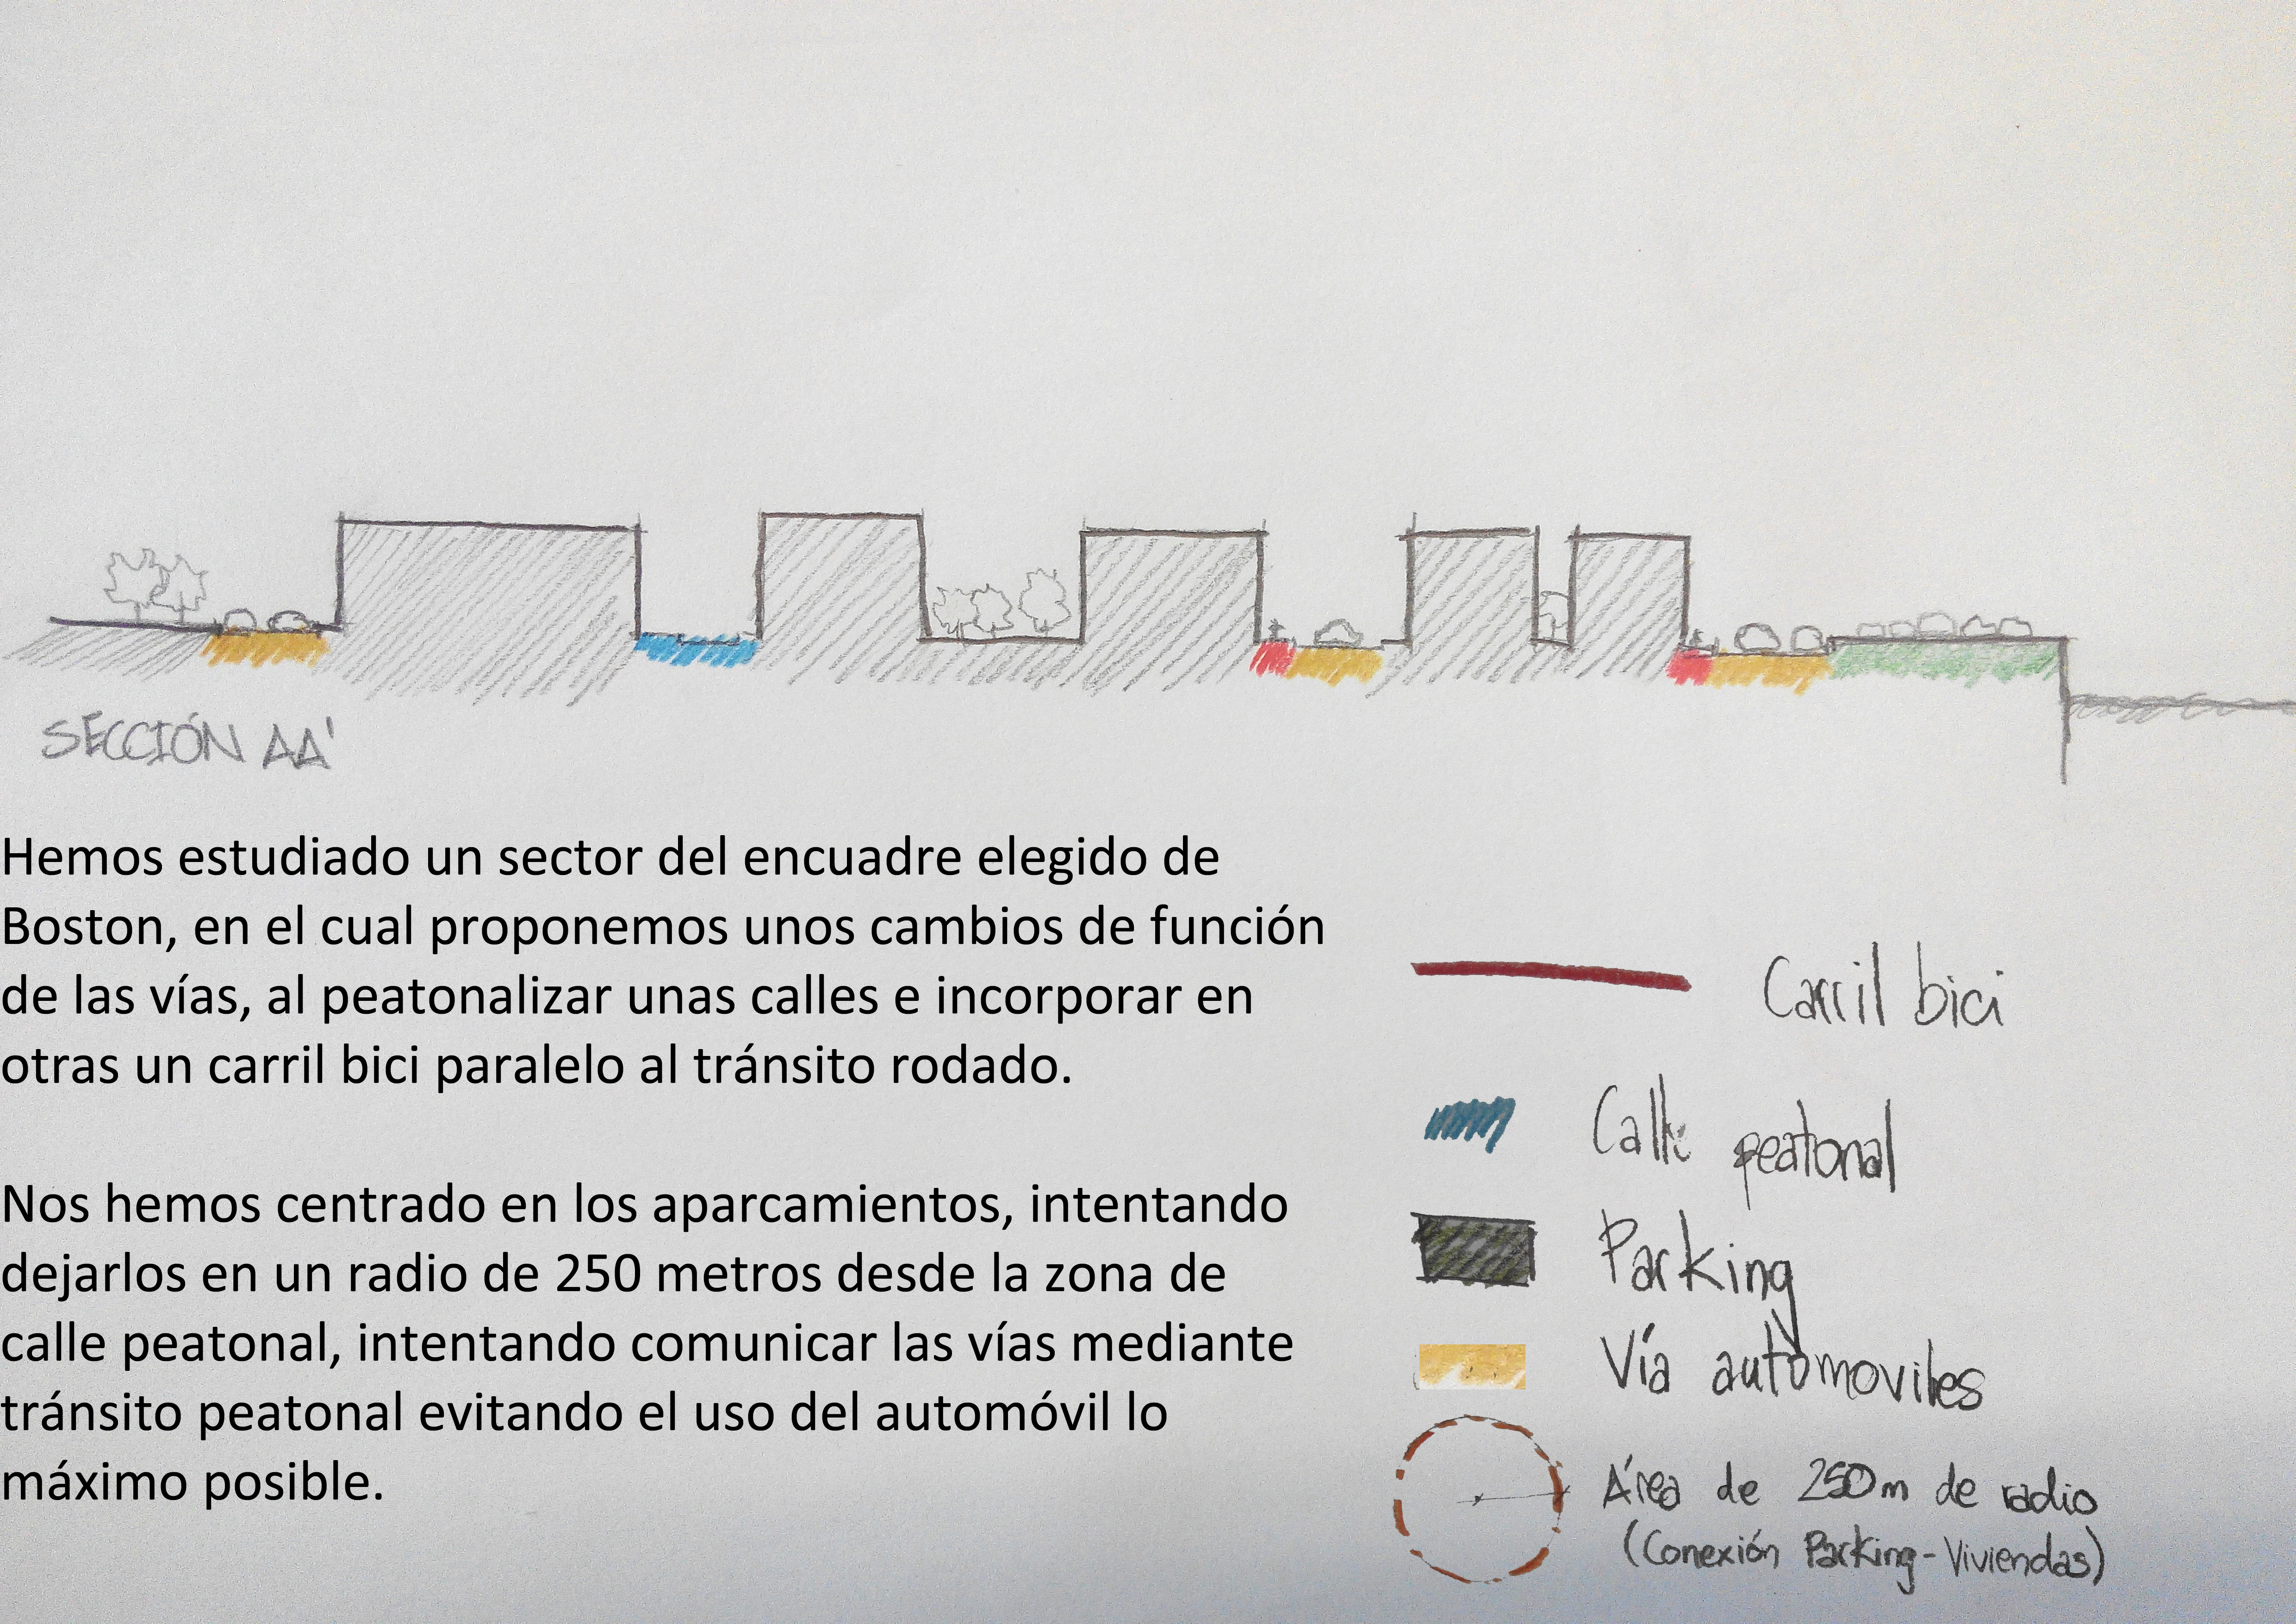 SECCIÓN AA'
Hemos estudiado un sector del encuadre elegido de
Boston, en el cual proponemos unos cambios de función
de las vías, al peatonalizar unas calles e incorporar en
otras un carril bici paralelo al tránsito rodado.
Nos hemos centrado en los aparcamientos, intentando
dejarlos en un radio de 250 metros desde la zona de
calle peatonal, intentando comunicar las vías mediante
tránsito peatonal evitando el uso del automóvil lo
máximo posible.
Carril bici
Calle peatonal
Parking
Vía automoviles
Área de 250m de radio
(Conexión Parking-Viviendas)